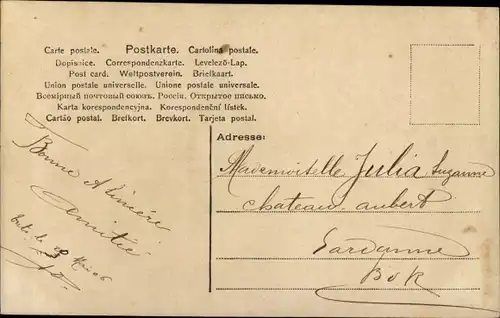 Carte postale. Postkarte. Cartolina postale.
Dopisnice. Correspondenzkarte. Levelező-Lap.
Post card. Weltpostverein. Briefkaart.
Union postale universelle. Unione postale universale.
Всемірный почтовый союзъ. Россія. Открытое письмо.
Karta korespondencyjna. Korespondenční lístek.
Cartão postal. Brefkort. Brevkort. Tarjeta postal.
Adresse:
Mademoiselle Julia Suzanne
chateau aubert
Gardanne
B d R
Bonne & Sincère
Amitié
le